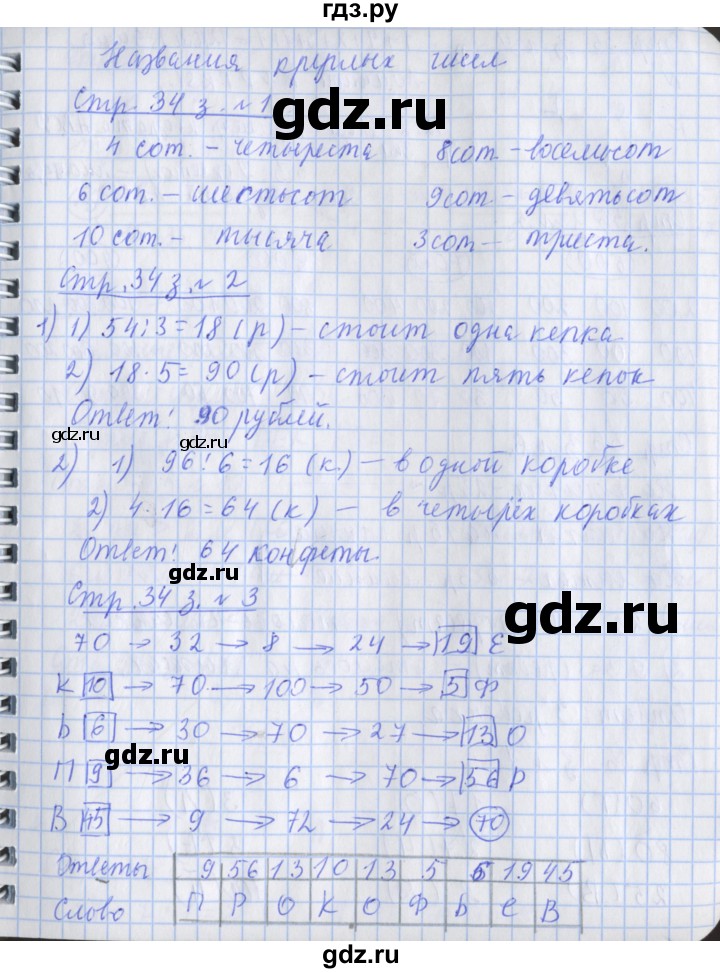 гдз.ру
Названия круглых чисел
Стр. 34 з. №1
gdz.ru
4 сот. – четыреста 8 сот. – восемьсот
6 сот. – шестьсот 9 сот. – девятьсот
10 сот. – тысяча 3 сот – триста.
Стр. 34 з. № 2
1) 1) 54:3=18 (р) – стоит одна кепка
2) 18·5=90 (р) – стоит пять кепок
Ответ: 90 рублей.
gdz.ru gdz.ru
2) 1) 96:6=16 (к.) – в одной коробке
2) 4·16=64 (к) – в четырёх коробках
Ответ: 64 конфеты.
gdz.ru
Стр. 34 з. № 3
gdz.ru
70 → 32 → 8 → 24 → 19 Е
К 10 → 70 → 100 → 50 → 5 Ф
Ь 6 → 30 → 70 → 27 → 13 О
gdz.ru
П 9 → 36 → 6 → 70 → 56 Р
В 45 → 9 → 72 → 24 → 70
Ответы 9 56 13 10 13 5 6 19 45
Слово П Р О К О Ф Ь Е В
gdz.ru gdz.ru